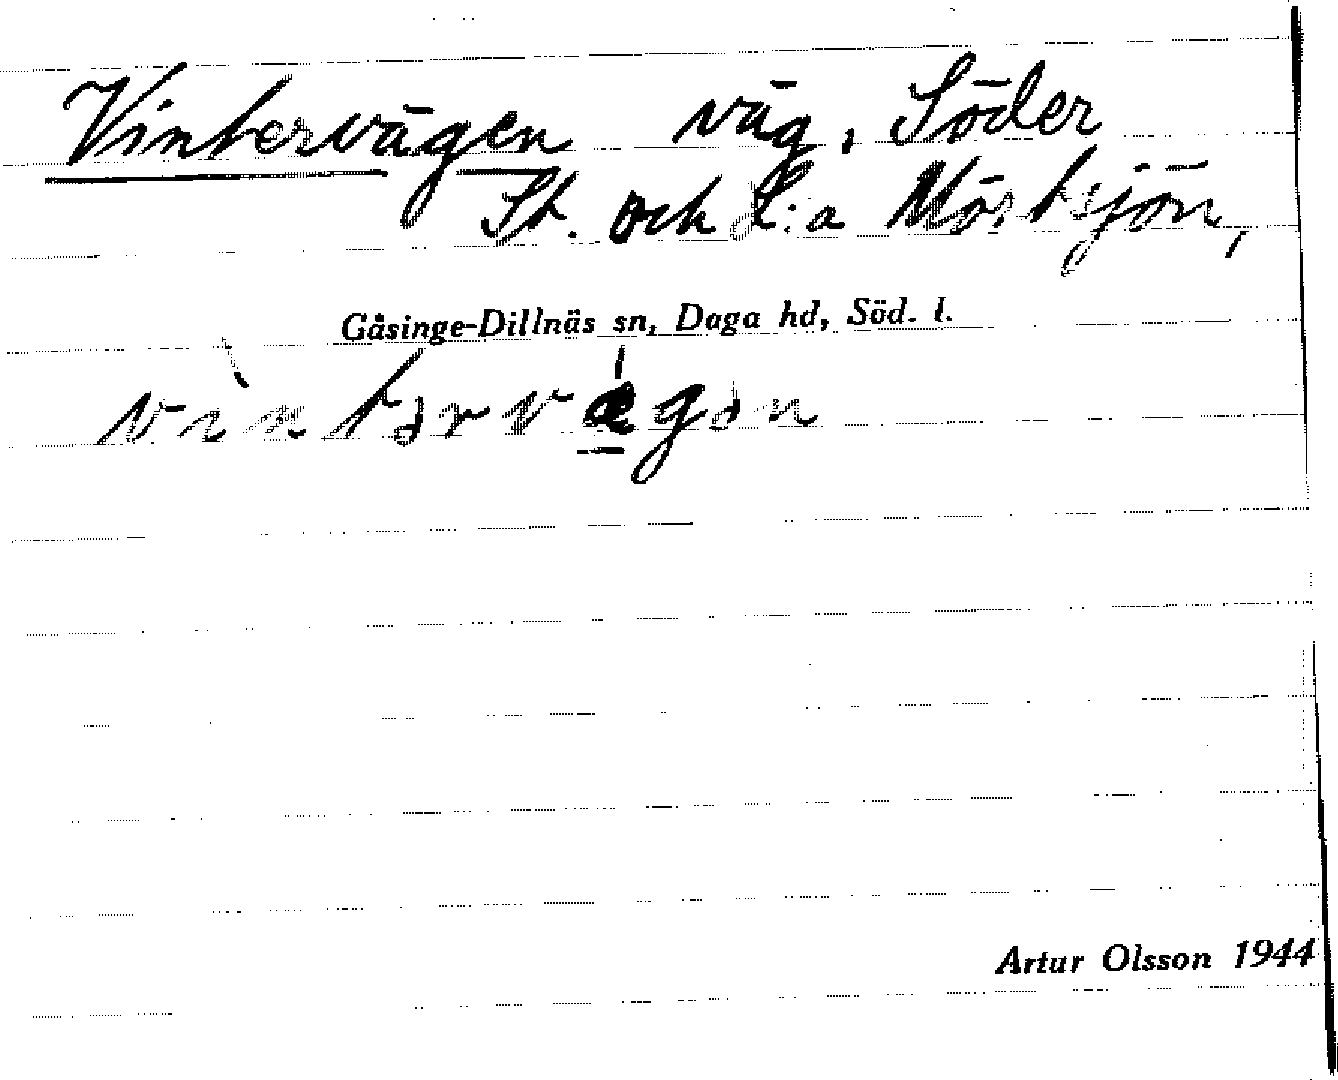 Vintervägen väg, Söder
St. och L:a Mörtsjön,
Gåsinge-Dillnäs sn, Daga hd, Söd. l.
vìntərvǽgən
Artur Olsson 1944